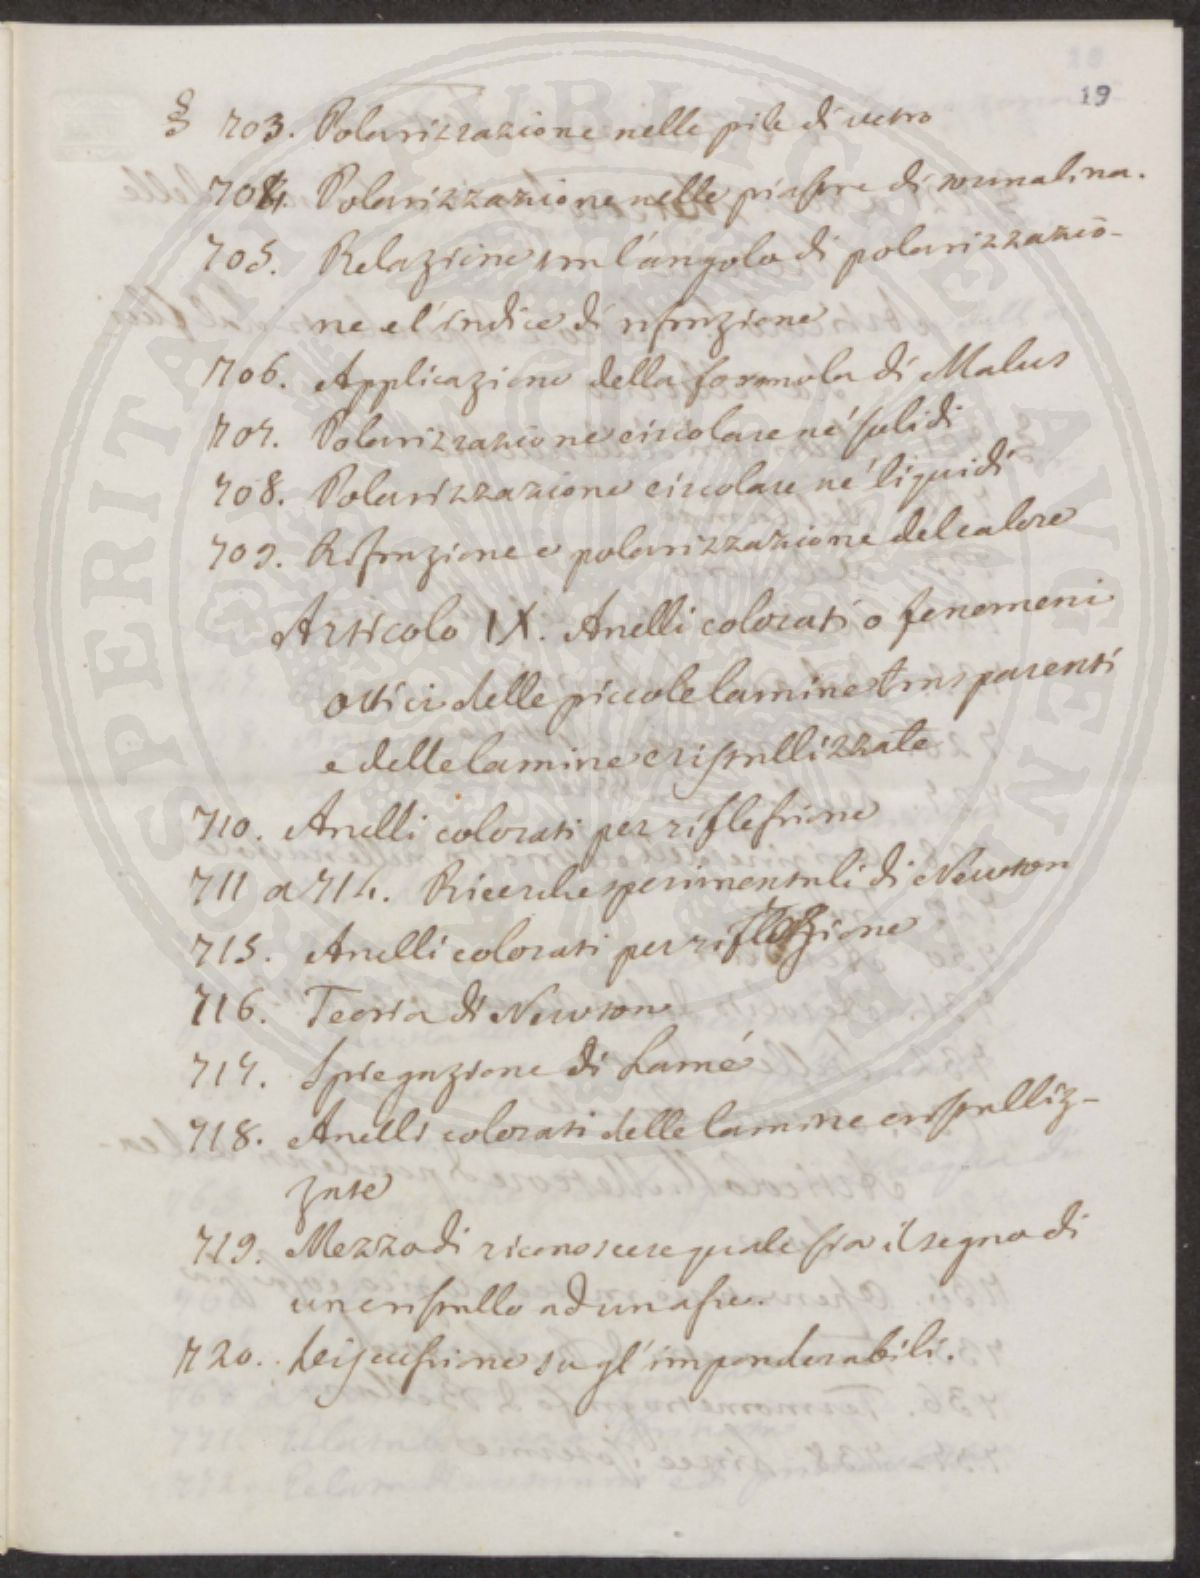 19
§ 703. Polarizzazione nelle pile di vetro
704. Polarizzazione nelle piastre di tormalina.
705. Relazione tra l'angolo di polarizzazio-
ne e l'indice di rifrazione
706. Applicazione della formola di Malus
707. Polarizzazione circolare ne' solidi
708. Polarizzazione circolare ne' liquidi
709. Rifrazione e polarizzazione del calore
Articolo IX. Anelli colorati o fenomeni
ottici delle piccole lamine trasparenti
e delle lamine cristallizzate
710. Anelli colorati per riflessione
711 a 714. Ricerche sperimentali di Newton
715. Anelli colorati per rifrazione
716. Teoria di Newton
717. Spiegazione di Lamé
718. Anelli colorati delle lamine cristalliz-
zate
719. Mezzo di riconoscere quale sia il segno di
un cristallo ad un asse.
720. Discussione su gl'imponderabili.
OSPERITATI PVBLICAE AVGENDAE